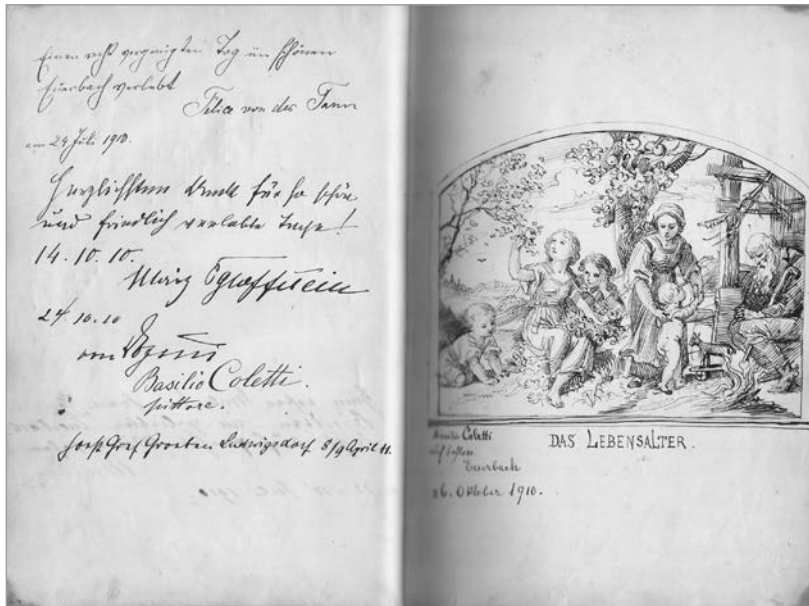 Einen recht vergnügten Tag im schönen
Euerbach verlebt
Felice von der Tann
am 24 Juli 1910.
Herzlichsten Dank für so schöne
und friedlich verlebte Tage!
14.10.10.
24.10.10
Basilio Coletti.
pittore.
Horst Graf Groeben Ludwigsdorf 8/9 April 11.
DAS LEBENSALTER.
Basilio Coletti
auf Schloss
Euerbach
26. Oktober 1910.